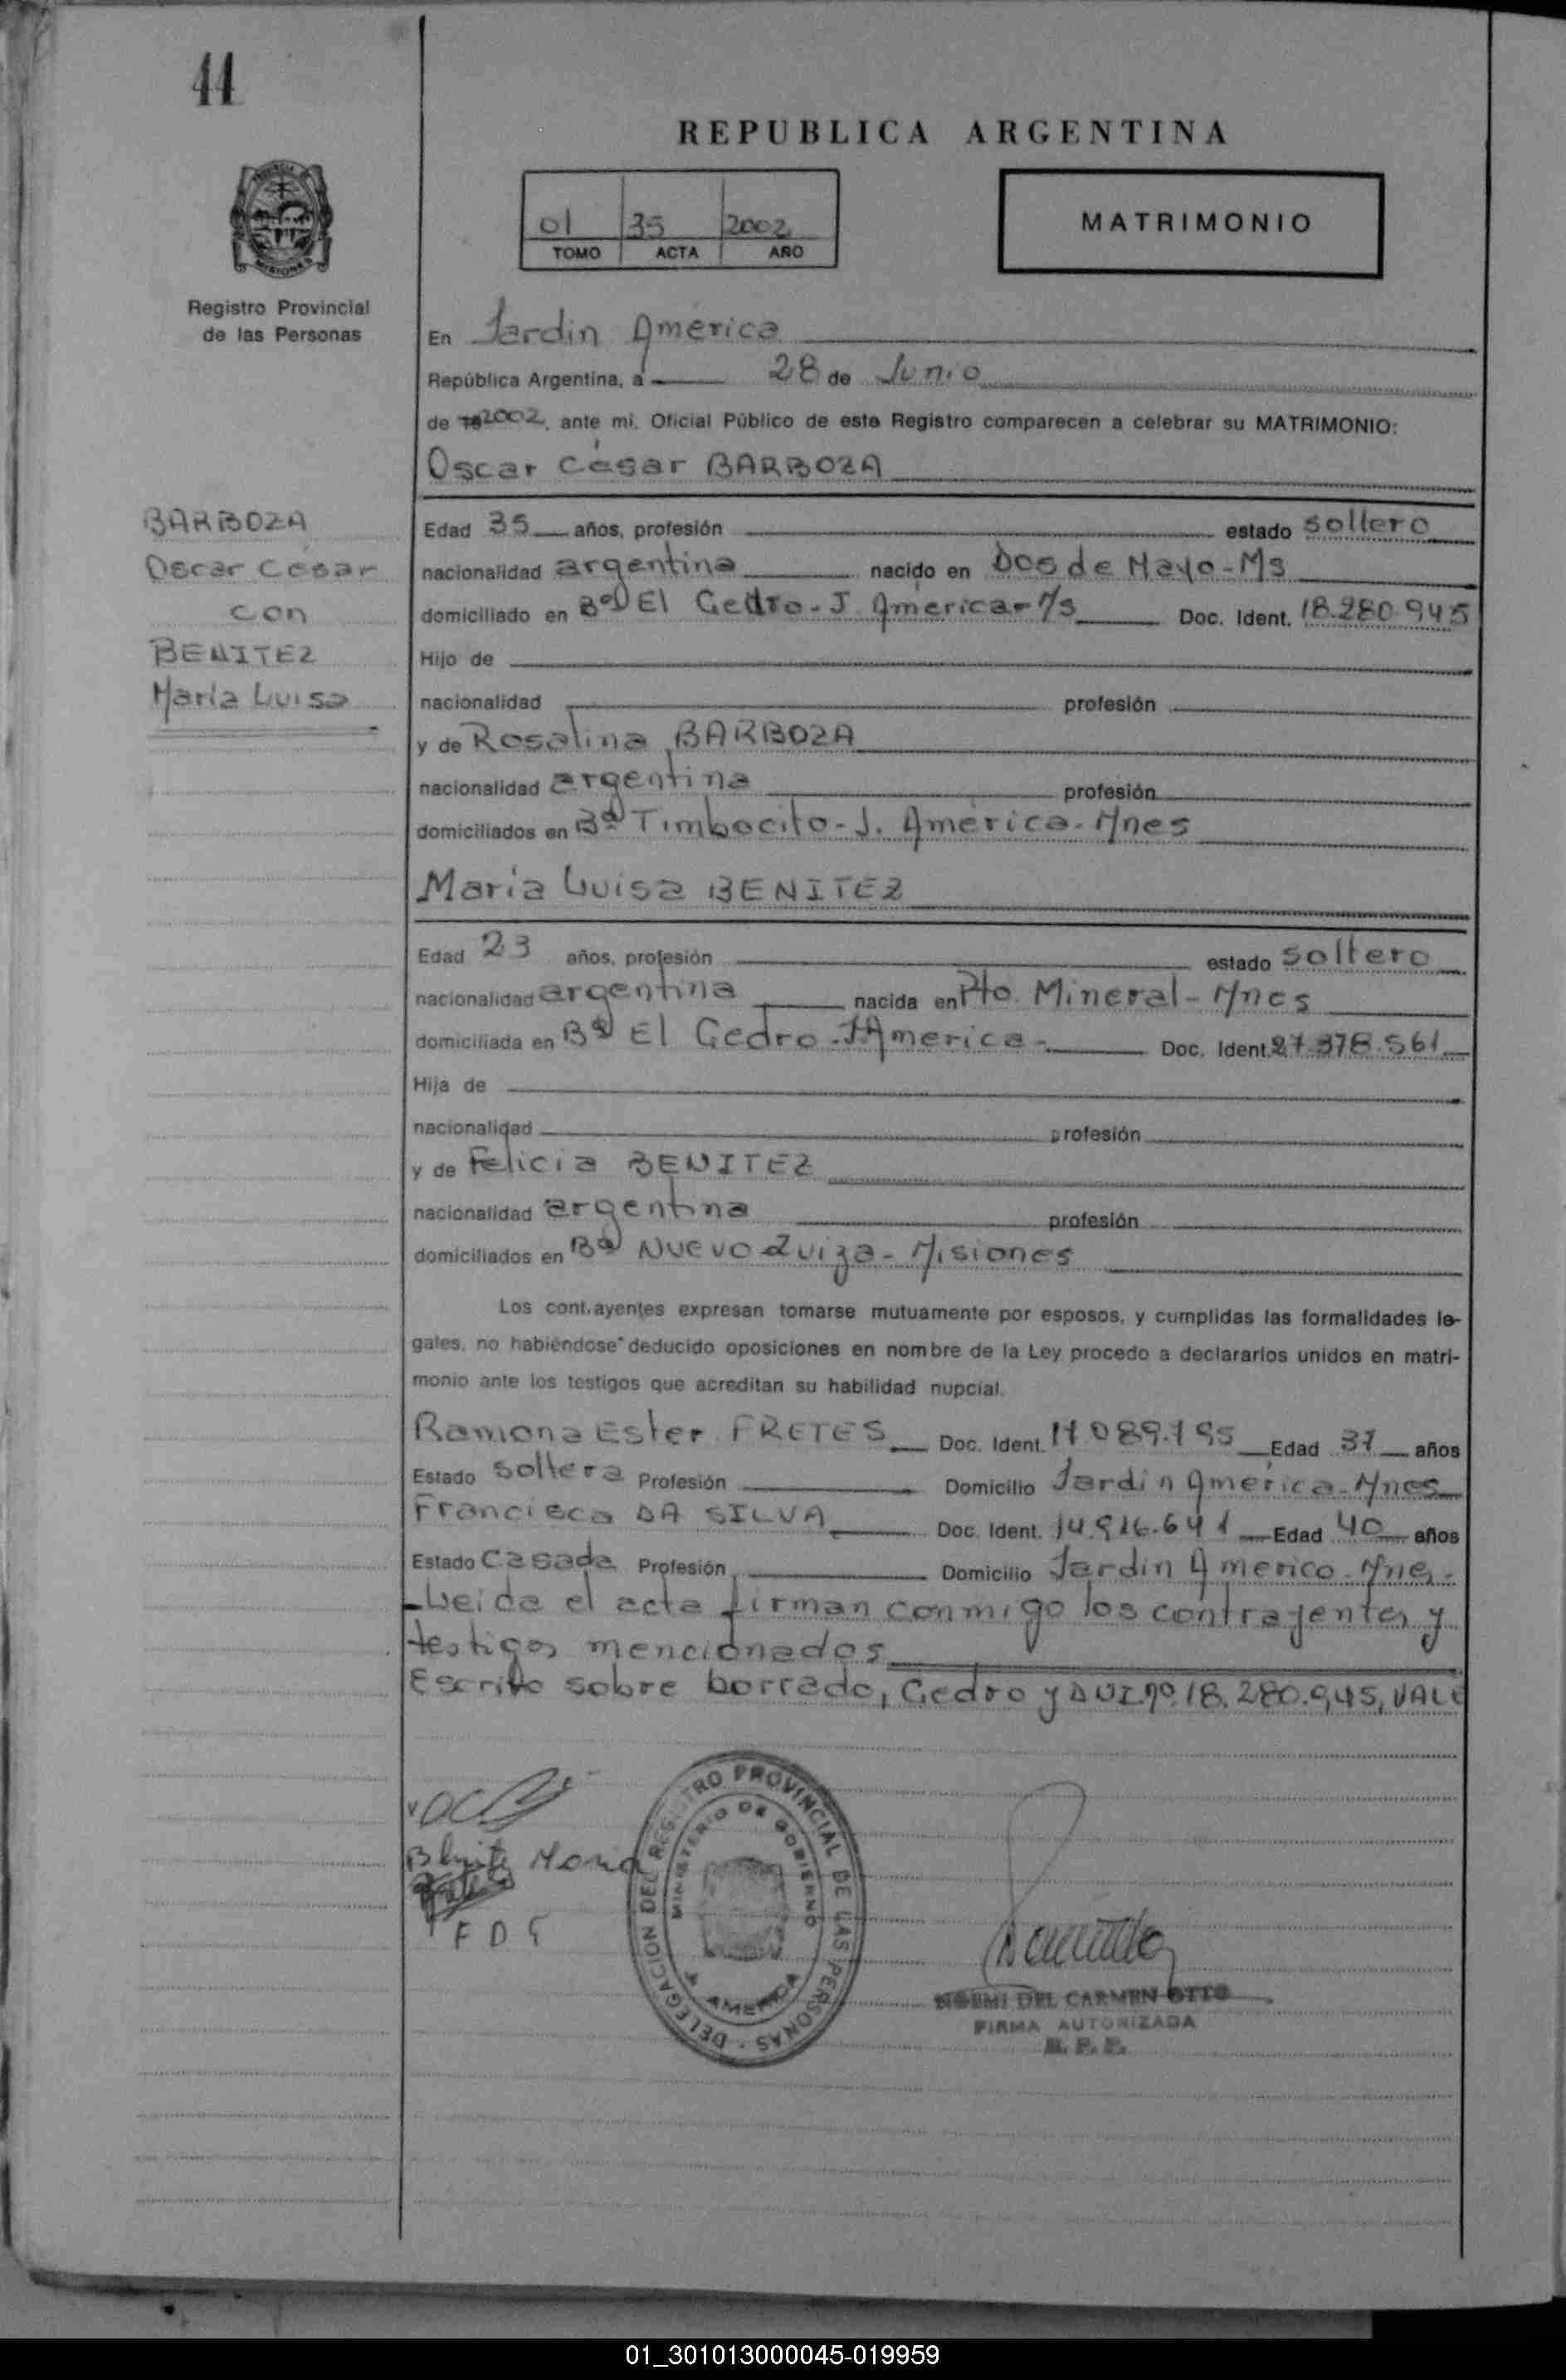 44
REPUBLICA ARGENTINA
01 35 2002
TOMO ACTA AÑO
MATRIMONIO
MISIONES
Registro Provincial
de las Personas
En Jardin America
República Argentina, a 28 de Junio
de 2002, ante mi, Oficial Público de este Registro comparecen a celebrar su MATRIMONIO:
Oscar César BARBOZA
BARBOZA
Oscar César
con
BENITEZ
María Luisa
Edad 35 años, profesión estado soltero
nacionalidad argentina nacido en Dos de Mayo-Ms
domiciliado en Bº El Cedro - J. América - Doc. Ident. 18.280.945
Hijo de
nacionalidad profesión
y de Rosalina BARBOZA
nacionalidad argentina profesión
domiciliados en Bº Timbocito - J. América - Mnes
María Luisa BENITEZ
Edad 23 años, profesión estado soltero
nacionalidad argentina nacida en Pto. Mineral - Mnes
domiciliada en Bº El Cedro - J America - Doc. Ident. 27.378.561
Hija de
nacionalidad profesión
y de Felicia BENITEZ
nacionalidad argentina profesión
domiciliados en Bº Nuevo - Misiones
Los contrayentes expresan tomarse mutuamente por esposos, y cumplidas las formalidades le-
gales, no habiéndose deducido oposiciones en nombre de la Ley procedo a declararlos unidos en matri-
monio ante los testigos que acreditan su habilidad nupcial.
Ramona Ester FRETES Doc. Ident. Edad años
Estado soltera Profesión Domicilio Jardin América - Mnes
Francisca DA SILVA Doc. Ident. 14.916.641 Edad 40 años
Estado Casada Profesión Domicilio Jardin America - Mnes -
-Leida el acta firman conmigo los contrayentes y
testigos mencionados
Escrito sobre borrado, Cedro y DNI nº 18.280.945, VALE
Maria
F D S
DELEGACION DEL REGISTRO PROVINCIAL DE LAS PERSONAS
MINISTERIO DE GOBIERNO
AMERICA
NOEMI DEL CARMEN OTTO
FIRMA AUTORIZADA
01_301013000045-019959